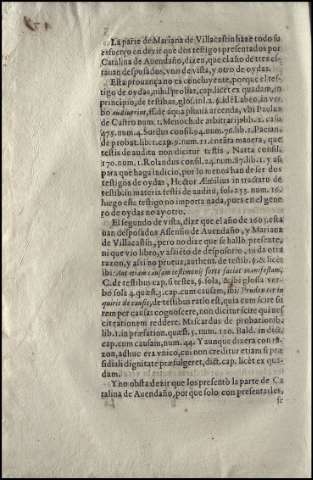 La parte de Mariana de Villacastin haze todo su
esfuerço en dezir que dos testigos presentados por
Catalina de Auendaño, dizen, que el año de tres es-
tauan desposados, vno de vista, y otro de oydas.
Esta prouança no es concluyente, porque el tes-
tigo de oydas, nihil probat, cap. licet ex quadam, in
principio, de testibus, glos. in l. 2. §. idem Labeo, in ver-
bo audiuerint, ff. de aqua pluuia arcenda, vbi Paulus
de Castro num. 1. Menoch. de arbitrarijs lib. 2. casu
475. num. 4. Surdus consi. 94. num. 76. lib. 1. Pacian.
de probat. lib. 1. cap. 9. num. 11. en tanta manera, que
testis de auditu non dicitur testis, Natta consil.
170. num. 1. Rolandus consil. 24. num. 87. lib. 1. y assi
para que haga indicio, por lo menos han de ser dos
testigos de oydas, Hector Æmilius in tractatu de
testibus in materia testis de auditu, fol. 253. num. 16.
luego este testigo no importa nada, pues en el gene-
ro de oydas no ay otro.
El segundo de vista, dize que el año de 1603. esta-
uan desposados Assensio de Auendaño, y Mariana
de Villacastin, pero no dize que se hallò presente,
ni que vio libro, y assi êto de desposorio, ni da otra
razon, y assi no prueua,
C. de testibus cap. 6. testes, §. sola, & ibi glossa ver-
bo sola 4. quæst. 3. cap. cum causam,
de testibus ratio est, quia cum scire su
rem per causas cognoscere, non dicitur scire qui nes-
cit eationem reddere. Mascardus de probationib.
lib. 1. in præfation. quæst. 5. num. 110. Bald. in dict.
cap. cum causam, num. 44. Y aunque diera con ra-
zon, adhuc era vnico, cui non creditur etiam si præ-
sidiali dignitate præfulgeret, dict. cap. licèt ex qua-
dam.
Y no obsta dezir que los presentò la parte de Ca
talina de Auendaño, porque solo con presentarles,
se